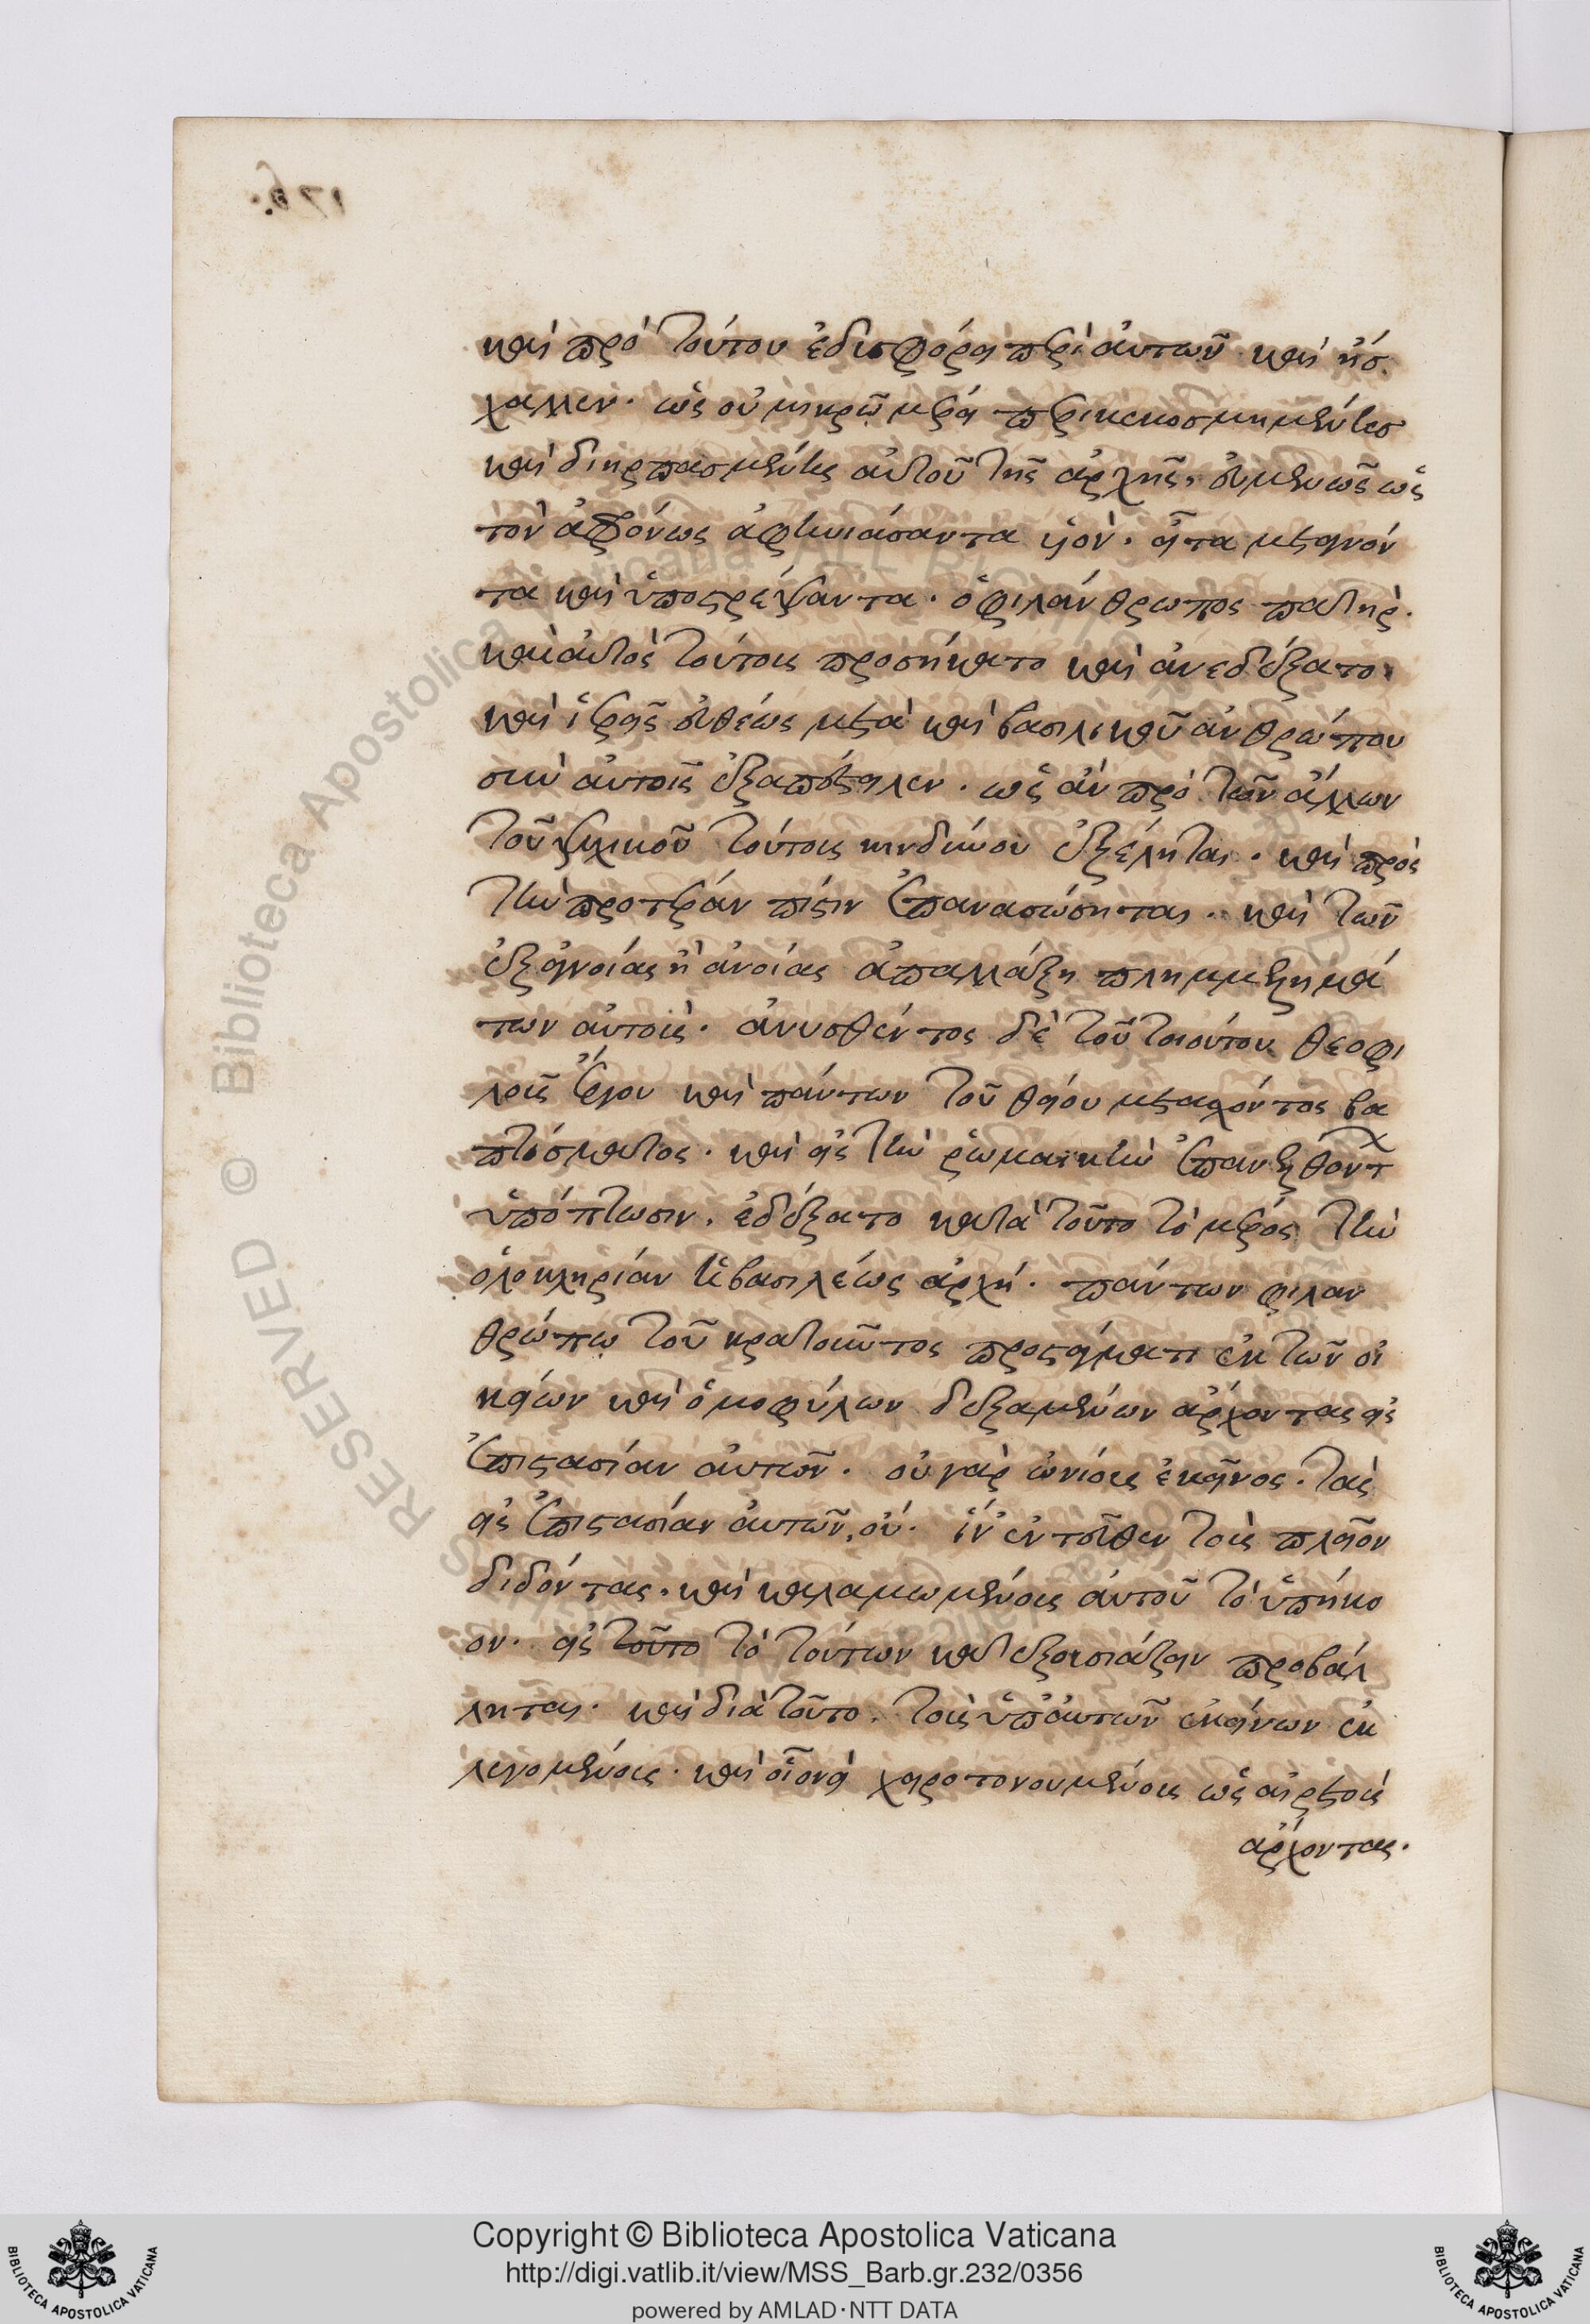 καὶ πρὸ τούτου ἐδυσφόρει περὶ αὐτῶν καὶ ἤσ
χαλλεν. ὡς οὐ μικρῷ μέρει περικεκοσμημένης
καὶ διηρπασμένης αὐτοῦ τῆς ἀρχῆς, εὐμενῶς ὡς
τὸν ἀφρόνως ἀφηνιάσαντα υἱὸν. εἶτα μεταγνόν
τα καὶ ὑποστρέψαντα. ὁ φιλάνθρωπος πατὴρ.
καὶ αὐτὸς τούτους προσήκατο καὶ ἀνεδέξατο.
καὶ ἱερεῖς εὐθέως μετὰ καὶ βασιλικοῦ ἀνθρώπου
σὺν αὐτοῖς ἐξαπέστειλεν. ὡς ἂν πρὸ τῶν ἄλλων
τοῦ ψυχικοῦ τούτους κινδύνου ἐξέληται. καὶ πρὸς
τὴν προτέραν πίστιν ἐπανασώσηται. καὶ τῶν
ἐξ ἀγνοίας ἢ ἀνοίας ἀπαλλάξῃ πλημμελημά
των αὐτοὺς. ἀνυσθέντος δὲ τοῦ τοιούτου θεοφι
λοῦς ἔργου καὶ πάντων τοῦ θείου μετασχόντων βα
πτίσματος. καὶ εἰς τὴν ῥωμαϊκὴν ἐπανελθόντων
ὑπόπτωσιν. ἐδέξατο κατὰ τοῦτο τὸ μέρος τὴν
ὁλοκληρίαν ἡ βασιλέως ἀρχή. πάντων φιλαν
θρώπῳ τοῦ κρατοῦντος προστάγματι ἐκ τῶν οἰ
κείων καὶ ὁμοφύλων δεξαμένων ἄρχοντας εἰς
ἐπιστασίαν αὐτῶν. οὐ γὰρ ὠνίους ἐκεῖνος. τὰς
εἰς ἐπιστασίαν αὐτῶν, οὐ. ἵν' ἐντεῦθεν τοὺς πλεῖον
διδόντας. καὶ καλαμωμένους αὐτοῦ τὸ ὑπήκο
ον. εἰς τοῦτο τὸ τούτων κατεξουσιάζειν προβάλ
ληται. καὶ διὰ τοῦτο. τοὺς ὑπ' αὐτῶν ἐκείνων ἐκ
λεγομένους. καὶ οἱονεὶ χειροτονουμένους ὡς αἱρετοὺς
ἄρχοντας.
Copyright © Biblioteca Apostolica Vaticana
http://digi.vatlib.it/view/MSS_Barb.gr.232/0356
powered by AMLAD·NTT DATA